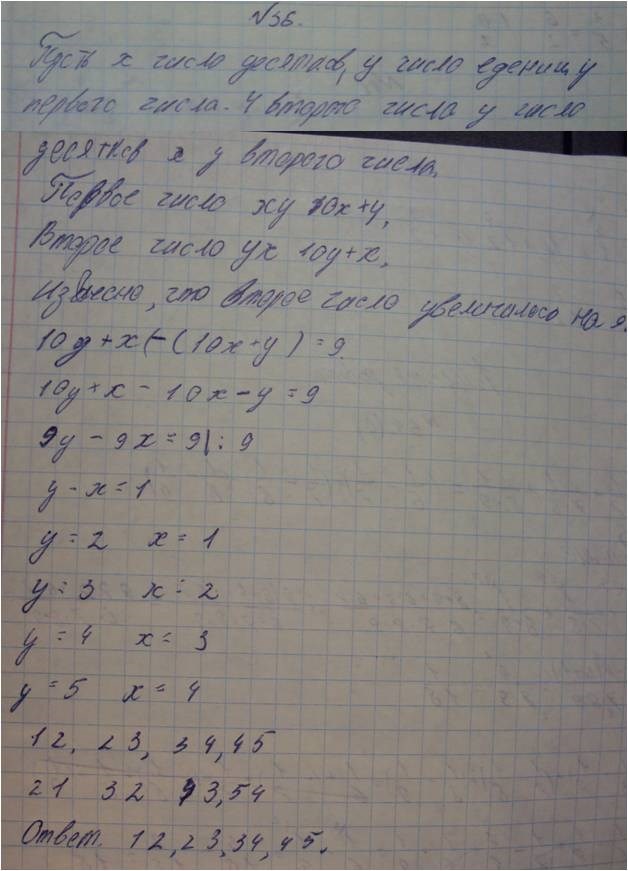 №36.
Пусть x число десятков, y число едениц у
первого числа. Ч второго числа y число
десятков x у второго числа.
Первое число xy 10x+y,
Второе число yx 10y+x,
Известно, что второе число увеличилось на 9.
10y+x-(10x+y)=9.
10y+x-10x-y=9
9y-9x=9|:9
y-x=1
y=2 x=1
y=3 x=2
y=4 x=3
y=5 x=4
12, 23, 34,45
21 32 43,54
Ответ. 12,23,34,45.